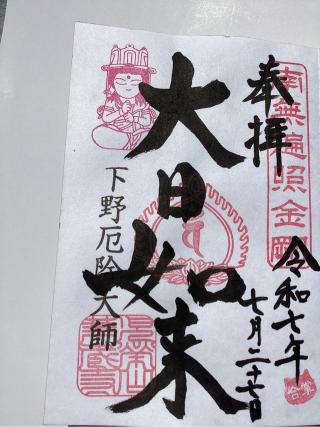 奉拝
南無遍照金剛
令和七年
七月二十七日
大日如来
下野厄除大師
合掌